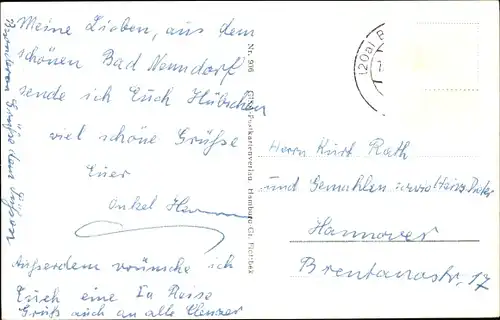 Meine Lieben, aus dem
schönen Bad Nenndorf
sende ich Euch Hübschen
viel schöne Grüße
Euer
Onkel
Außerdem wünsche ich
Euch eine Ia Reise
Gruß auch an alle
Besonderen Grüße dem
Nr. 906
Postkartenverlag Hamburg-Gr. Flottbek
(20a) B
Herrn Kurt Rath
und Gemahlin sowie Heinz Peter
Hannover
Brentanostr. 17